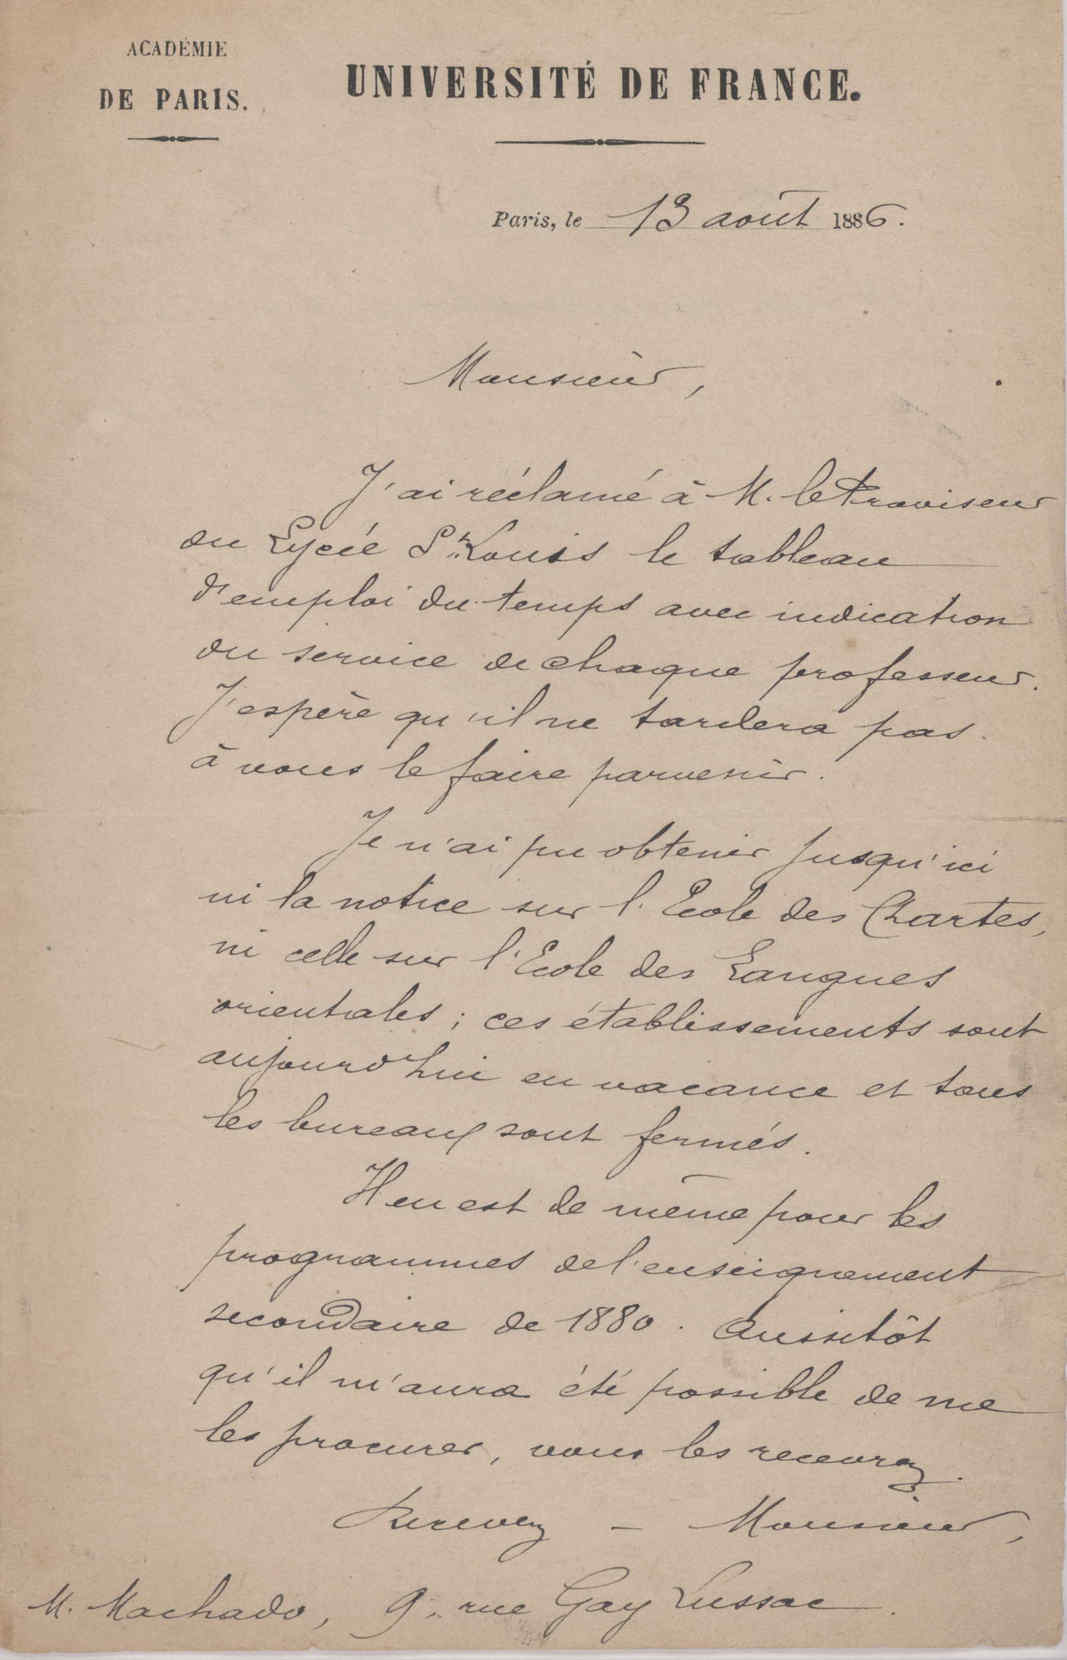 ACADÉMIE
DE PARIS.
UNIVERSITÉ DE FRANCE.
Paris, le 13 août 1886.
Monsieur,
J'ai réclamé à M. le Proviseur
du Lycée St Louis le tableau
d'emploi du temps avec indication
du service de chaque professeur.
J'espère qu'il ne tardera pas
à vous le faire parvenir.
Je n'ai pu obtenir jusqu'ici
ni la notice sur l'Ecole des Chartes,
ni celle sur l'Ecole des Langues
orientales ; ces établissements sont
aujourd'hui en vacance et tous
les bureaux sont fermés.
Il en est de même pour les
programmes de l'enseignement
secondaire de 1880. Aussitôt
qu'il m'aura été possible de me
les procurer, vous les recevrez.
Recevez – Monsieur,
M. Machado, 9, rue Gay Lussac.